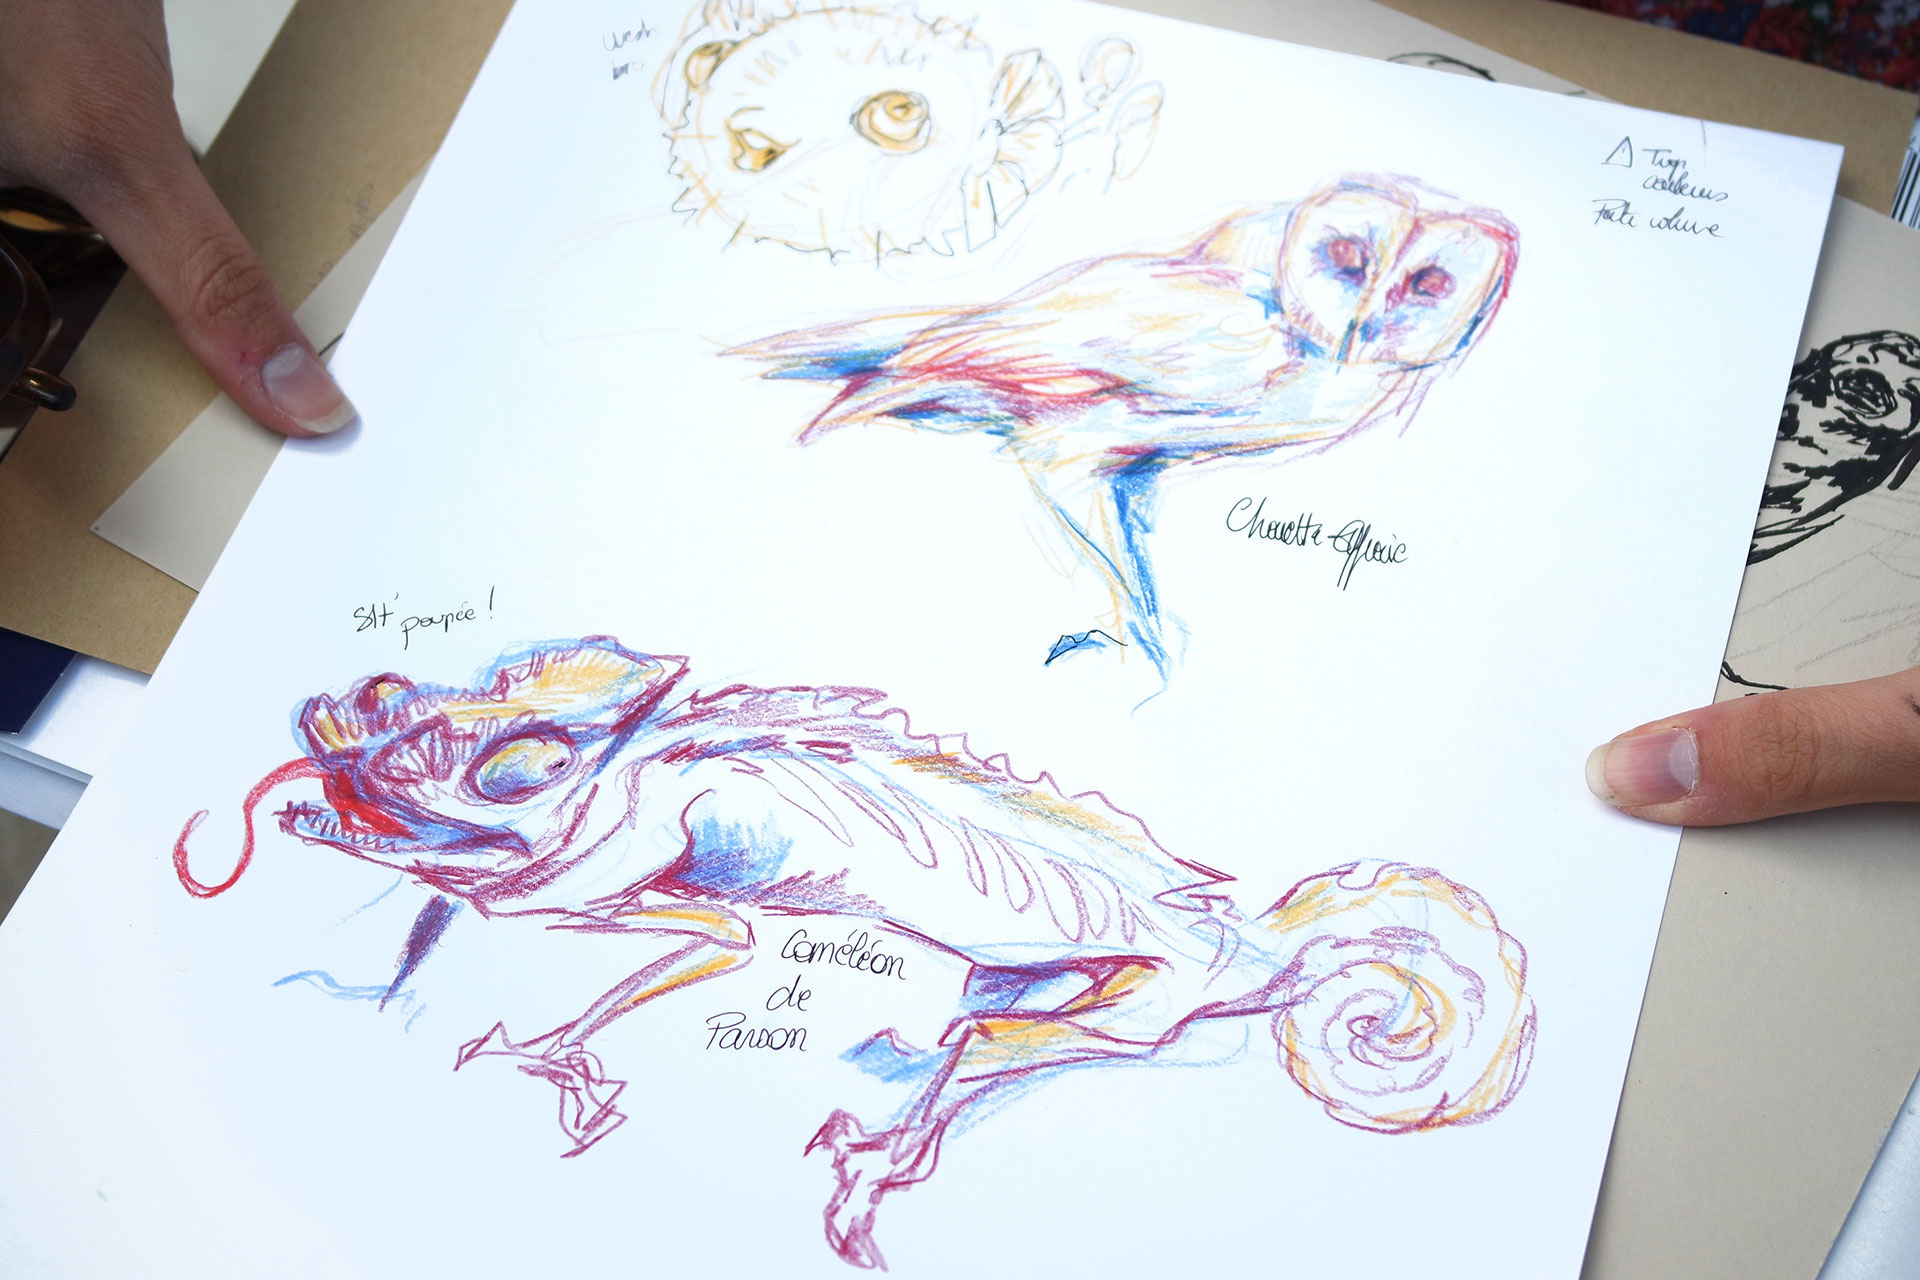 Wesh
bro
⚠ Trop
couleurs
Porte volume
Chouette-Effraie
Slt' poupée !
Caméléon
de
Parson